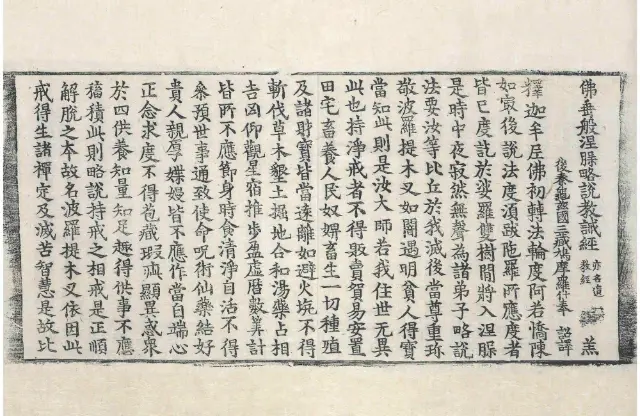 佛垂般涅槃略說教誡經 亦名遺教經 羔
後秦龜茲國三藏鳩摩羅什奉 詔譯
釋迦牟尼佛初轉法輪度阿若憍陳
如最後說法度須跋陁羅所應度者
皆已度訖於娑羅雙樹間將入涅槃
是時中夜寂然無聲為諸弟子略說
法要汝等比丘於我滅後當尊重珎
敬波羅提木叉如闇遇明貧人得寶
當知此則是汝大師若我住世無異
此也持淨戒者不得販賣貿易安置
田宅畜養人民奴婢畜生一切種殖
及諸財寶皆當遠離如避火坑不得
斬伐草木墾土掘地合和湯藥占相
吉凶仰觀星宿推步盈虛曆數筭計
皆所不應節身時食清淨自活不得
參預世事通致使命呪術仙藥結好
貴人親厚媟嫚皆不應作當自端心
正念求度不得苞藏瑕疵顯異惑眾
於四供養知量知足趣得供事不應
稸積此則略說持戒之相戒是正順
解脫之本故名波羅提木叉依因此
戒得生諸禪定及滅苦智慧是故比